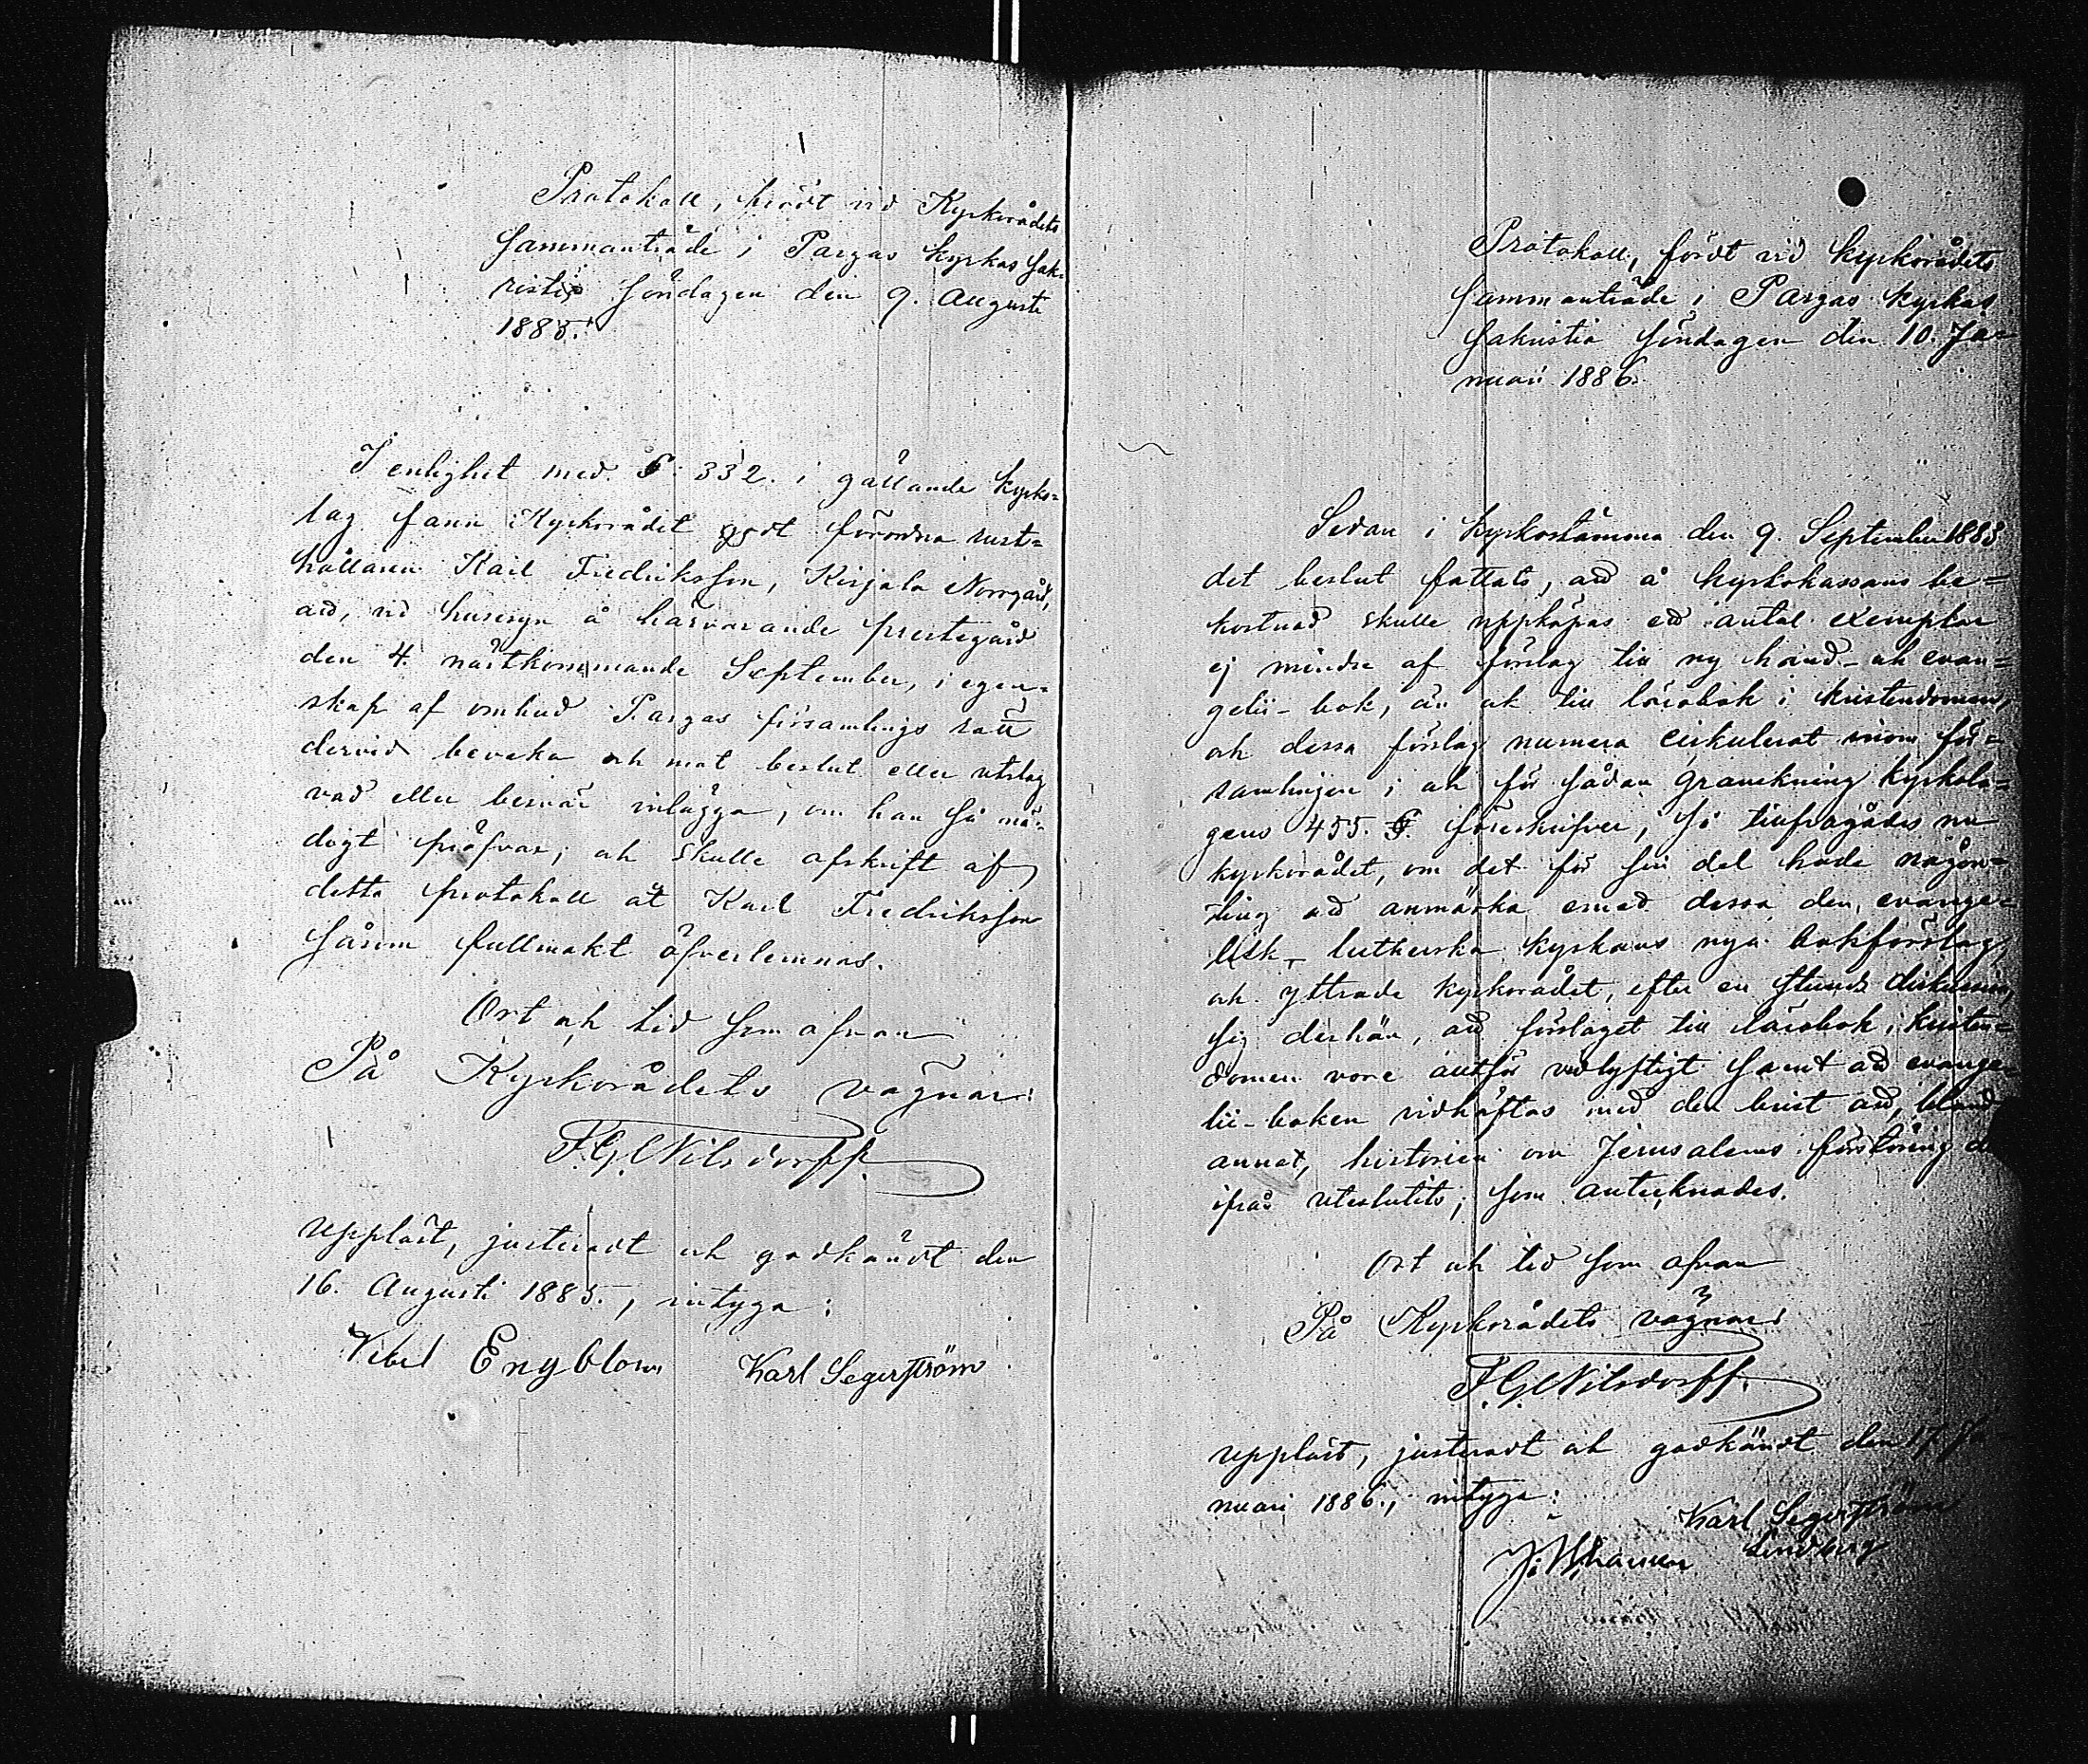 Protokoll, fördt vid Kyrkorådets
sammanträde i Pargas kyrkas sak-
ristia söndagen den 9. Augusti
1885.
I enlighet med §. 332. i gällande kyrko-
lag fann Kyrkorådet godt förordna rust-
hållaren Karl Fredriksson, Kirjala Norrgård,
att, vid husesyn å härvarande prestegård
den 4. nästkommande September, i egen-
skap af ombud Pargas församlings rätt
dervid bevaka och mot beslut eller utslag
vad eller besvär inlägga, om han så nö-
digt pröfvar; och skulle afskrift af
detta protokoll åt Karl Fredriksson
såsom fullmakt öfverlemnas.
Ort och tid som ofvan
På Kyrkorådets vägnar:
F. G. Nilsdorff.
Uppläst, justeradt och godkändt den
16. Augusti 1885., intyga:
Engblom Karl Segerström
Protokoll, fördt vid kyrkorådets
sammanträde i Pargas kyrkas
sakristia söndagen den 10. Ja-
nuari 1886.
Sedan i kyrkostämma den 9. September 1885
det beslut fattats, att å kyrkokassans be-
kostnad skulle uppköpas ett antal exemplar
ej mindre af förslag till ny hand- och evan-
gelii-bok, än ock till lärobok i kristendomen,
och dessa förslag numera cirkulerat inom för-
samlingen i och för sådan granskning kyrkola-
gens 455. §. föreskrifver, så tillfrågades nu
kyrkorådet, om det för sin del hade någon-
ting att anmärka emot dessa den evange-
lisk-lutherska kyrkans nya bokförslag,
och yttrade kyrkorådet, efter en stunds diskussion,
sig derhän, att förslaget till lärobok i kristen-
domen vore alltför vidlyftigt samt att evange-
lii-boken vidhäftas med den brist att, bland
annat, historien om Jerusalems förstöring der-
ifrån uteslutits; som antecknades.
Ort och tid som ofvan
På Kyrkorådets vägnar:
F. G. Nilsdorff.
Uppläst, justeradt och godkändt den 17. Ja-
nuari 1886., intyga:
Karl Segerström
Lindberg